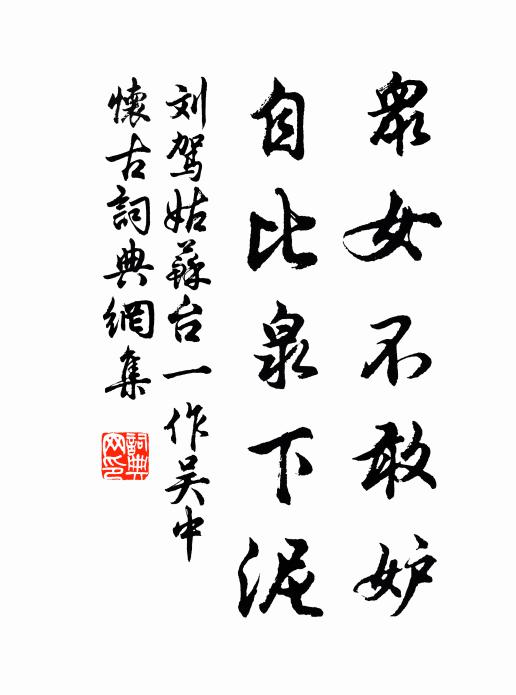 眾女不敢妒
自比泉下泥
刘駕姑蘇台一作吴中
懷古詞典網集
詞典網印